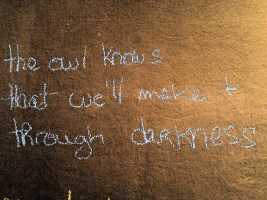 the owl knows
that we'll make it
through darkness